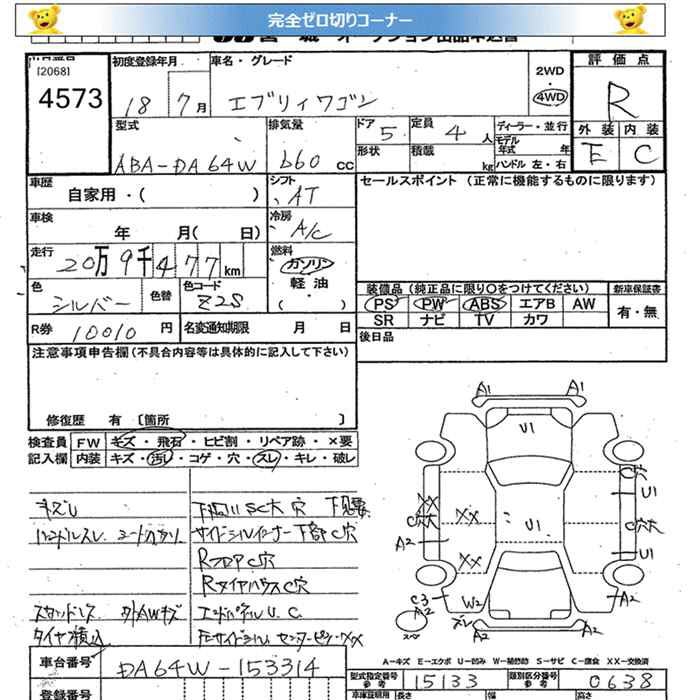 完全ゼロ切りコーナー
[2068]
4573
初度登録年月 18 7月
車名・グレード エブリィワゴン
2WD
4WD
評価点 R
外装 E 内装 C
型式 ABA-DA64W
排気量 660 CC
ドア 5
定員 4 人
形状
積載 kg
ディーラー・並行
モデル年式 年
ハンドル 左・右
車歴 自家用・( )
シフト AT
セールスポイント (正常に機能するものに限ります)
車検 年 月( 日)
冷房 A/C
走行 20万9千477km
燃料 ガソリン
軽油
・( )
色 シルバー 色替
色コード Z2S
装備品(純正品に限り○をつけてください) 新車保証書
PS PW ABS エアB AW 有・無
SR ナビ TV カワ
R券 10010 円 名変通知期限 月 日
後日品
注意事項申告欄(不具合内容等は具体的に記入して下さい)
修復歴 有 〔箇所 〕
検査員 FW キズ・飛石・ヒビ割・リペア跡・×要
記入欄 内装 キズ・汚れ・コゲ・穴・スレ・キレ・破レ
キズU
ハンドルスレ
下廻り SC大 穴 下見要
サイドシルインナー下部C穴
RフロアC穴
RタイヤハウスC穴
スタッドレス 外AWキズ
エンドパネルU.C.
タイヤ積込
A1 A1
U1
XX
C穴
U1
XX
C穴大
U1
C穴大
A2
XX
U1
C3
A2
W2
A2
ズレ
A2 A2
スペア
A-キズ E-エクボ U-凹み W-補修跡 S-サビ C-腐食 XX-交換済
車台番号 DA64W-153314
型式指定番号 15133 類別区分番号 0638
参考 参考
登録番号
車庫証明用 長さ 幅 高さ